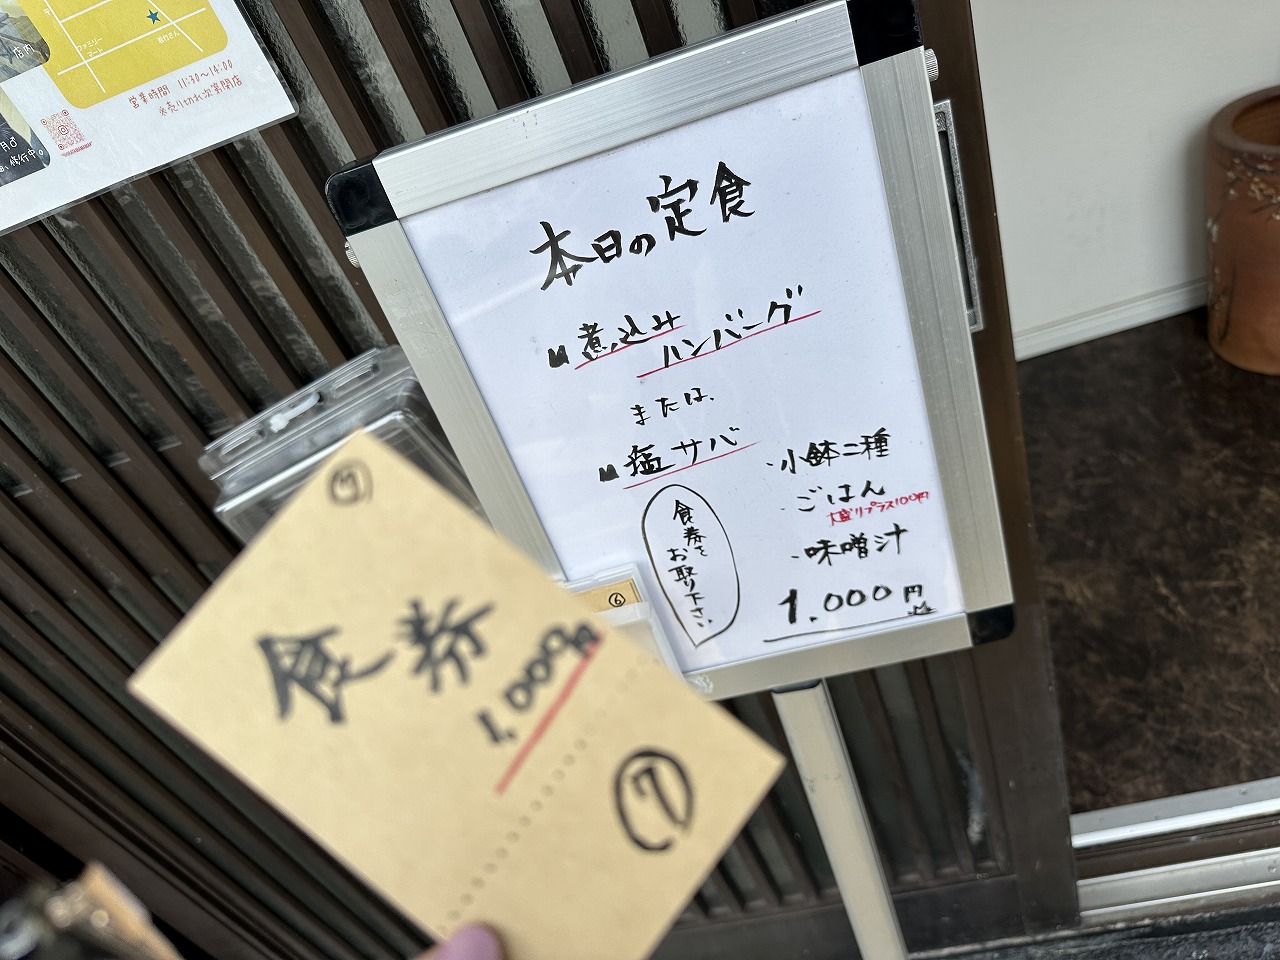 店内
ファミリー
マート
営業時間 11:30〜14:00
※売り切れ次第閉店
修行中。
本日の定食
煮込み
ハンバーグ
または、
塩サバ
・小鉢二種
・ごはん
大盛りプラス100円
・味噌汁
1,000円
食券を
お取り下さい
⑥
⑦
食券
1,000円
⑦